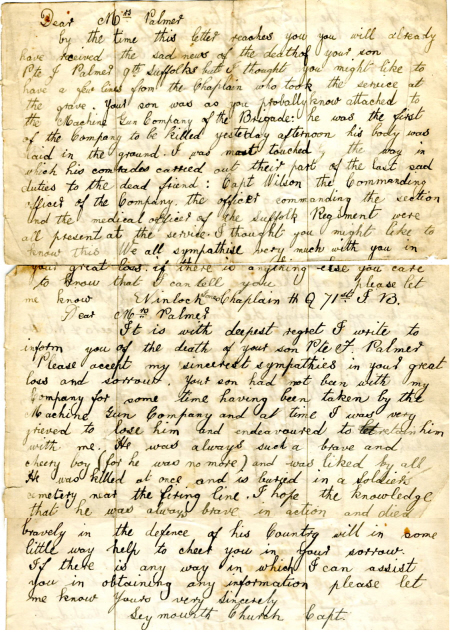 Dear Mrs Palmer
by the time this letter reaches you you will already
have received the sad news of the death of your son
Pte J Palmer 9th Suffolks but i thought you might like to
have a few lines from the Chaplain who took the service at
the grave. Your son was as you probally know attached to
the Machine Gun Company of the Brigade: he was the first
of the Company to be killed yesterday afternoon his body was
laid in the ground. I was most touched by the way in
which his comrades carried out their part of the last sad
duties to the dead friend: Capt Wilson the Commanding
officer of the Company, the officer commanding the section
and the medical officer of the Suffolk Regiment were
all present at the service. I thought you might like to
know this. We all sympathise very much with you in
your great loss. if there is anything else you care
to know that I can tell you please let
me know Chaplain H Q 71st I B.
Dear Mrs Palmer
It is with deepest regret I write to
inform you of the death of your son Pte F Palmer
Please accept my sincerest sympathies in your great
loss and sorrow. Your son had not been with my
Company for some time having been taken by the
Machine Gun Company and at time I was very
grieved to lose him and endeavoured to let retain him
with me. He was always such a brave and
cheery boy (for he was no more) and was liked by all
He was killed at once and is buried in a Soldiers
cemetery near the firing line. I hope the knowledge
that he was always brave in action and died
bravely in the defence of his Country will in some
little way help to cheer you in your sorrow.
If there is any way in which I can assist
you in obtaining any information please let
me know Yours very sincerely
Seymounth Church Capt.